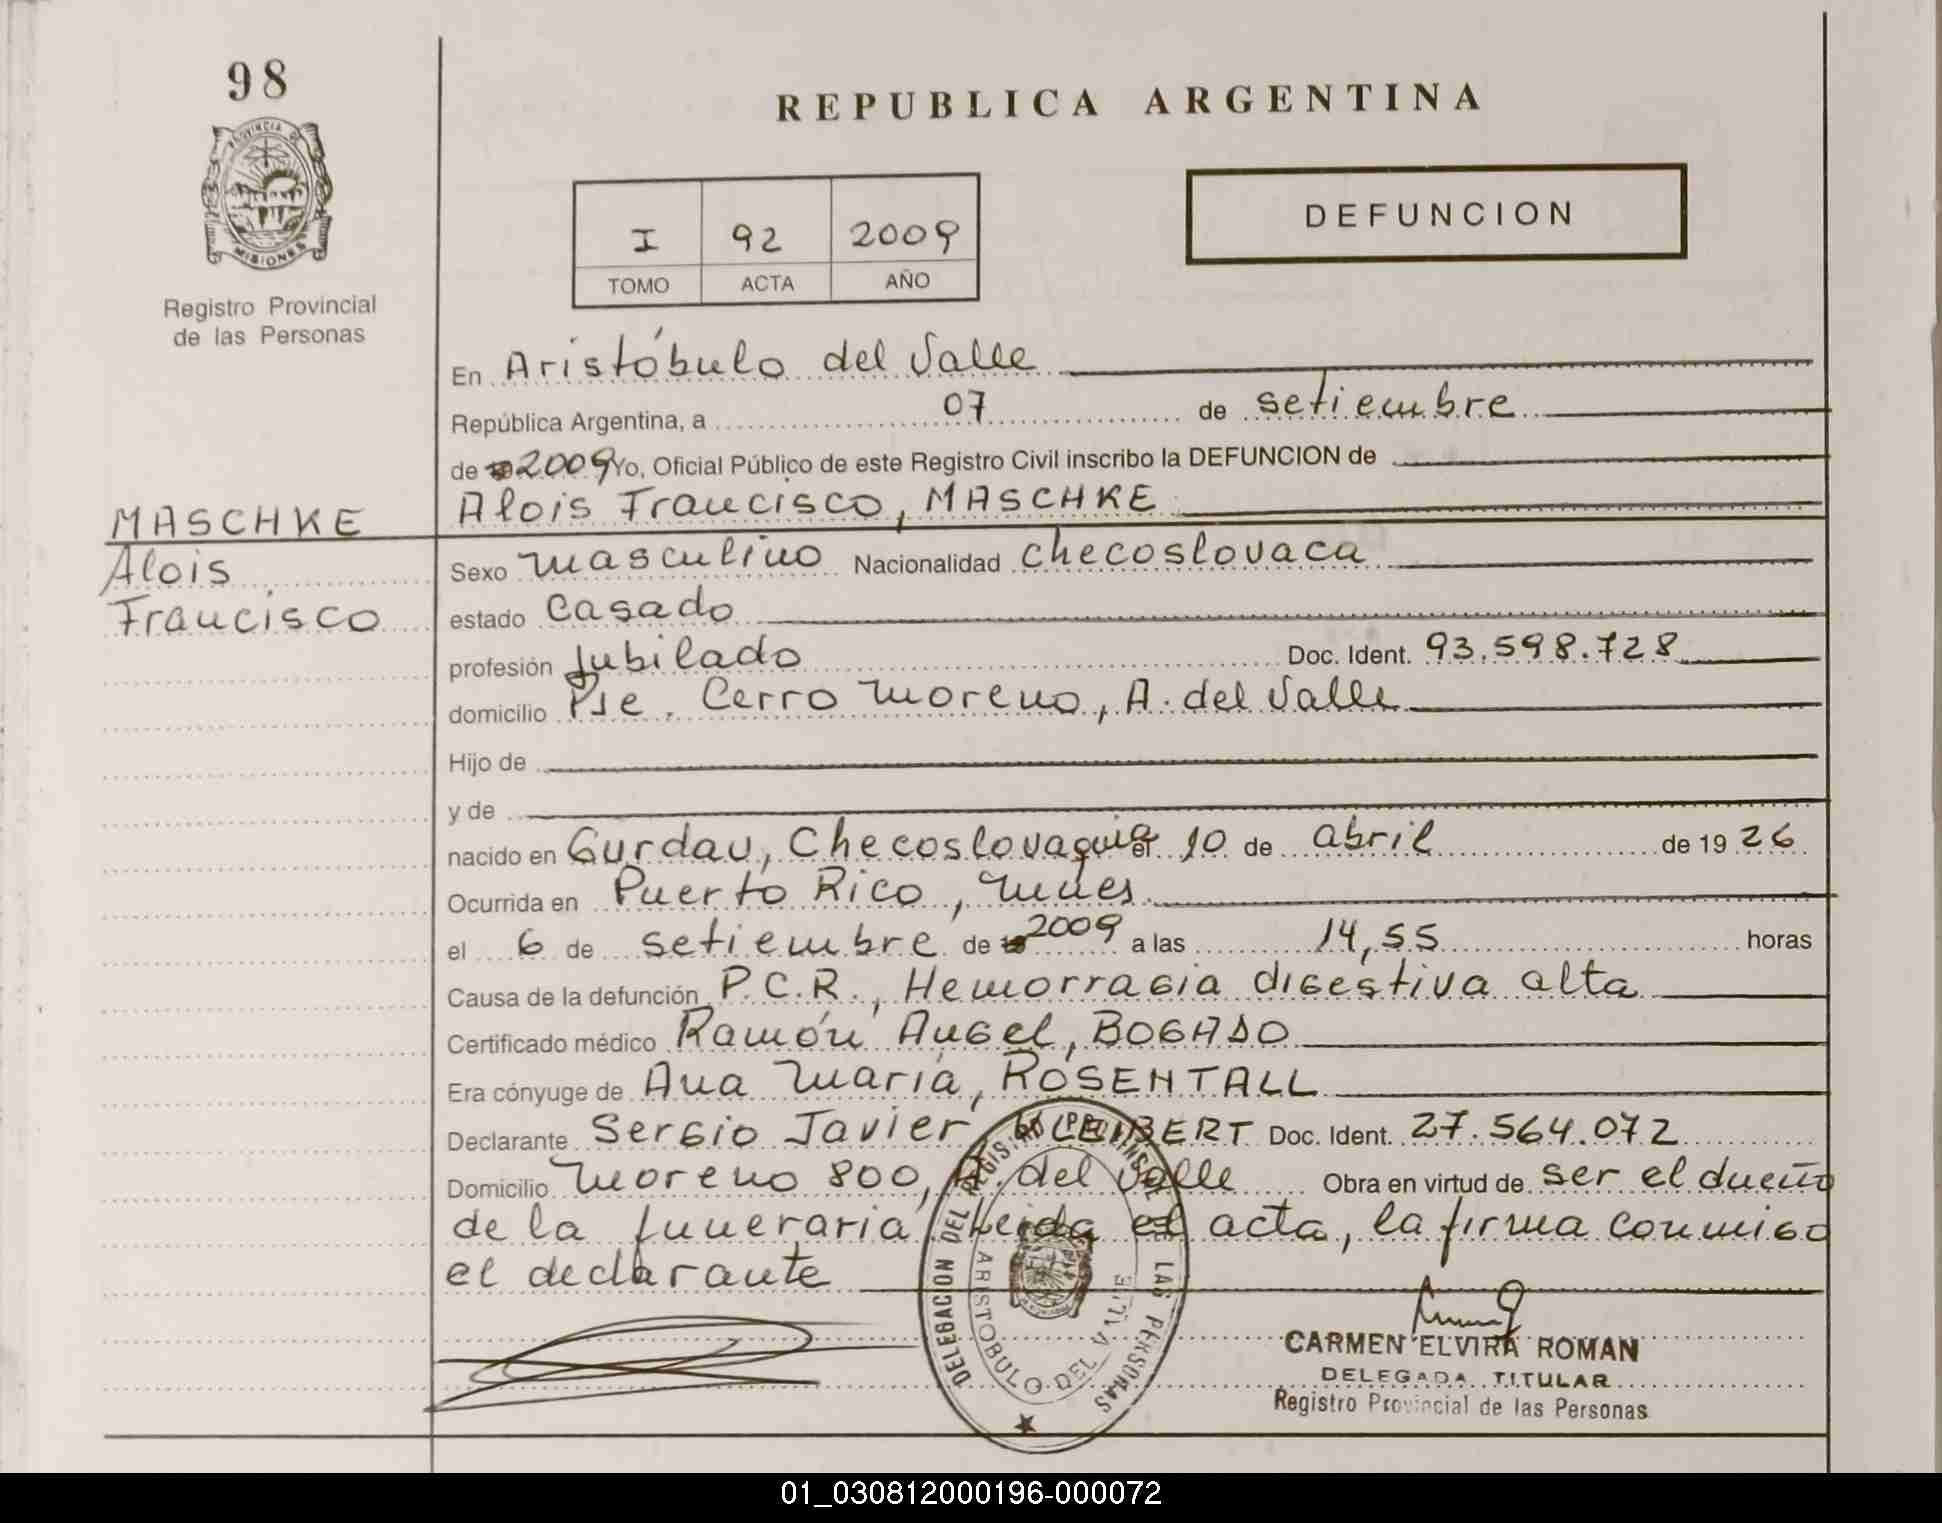 98
PROVINCIA DE
MISIONES
Registro Provincial
de las Personas
REPUBLICA ARGENTINA
I 92 2009
TOMO ACTA AÑO
DEFUNCION
En Aristóbulo del Valle
República Argentina, a 07 de setiembre
de 2009 Yo, Oficial Público de este Registro Civil inscribo la DEFUNCION de
MASCHKE
Alois
Francisco
Alois Francisco, MASCHKE
Sexo masculino Nacionalidad checoslovaca
estado casado
profesión Jubilado Doc. Ident. 93.598.728
domicilio Pje. Cerro Moreno, A. del Valle
Hijo de
y de
nacido en Gurdau, Checoslovaquia el 10 de abril de 1926
Ocurrida en Puerto Rico, Mnes
el 6 de setiembre de 2009 a las 14,55 horas
Causa de la defunción P.C.R., Hemorragia digestiva alta
Certificado médico Ramón Angel, BOGADO
Era cónyuge de Ana María, ROSENTALL
Declarante Sergio Javier Doc. Ident. 27.564.072
Domicilio Moreno 800, A. del Valle Obra en virtud de ser el dueño
de la funeraria leida el acta, la firma conmigo
el declarante
DELEGACION DEL REGISTRO PROVINCIAL DE LAS PERSONAS
ARISTOBULO DEL VALLE
CARMEN ELVIRA ROMAN
DELEGADA TITULAR
Registro Provincial de las Personas
01_030812000196-000072